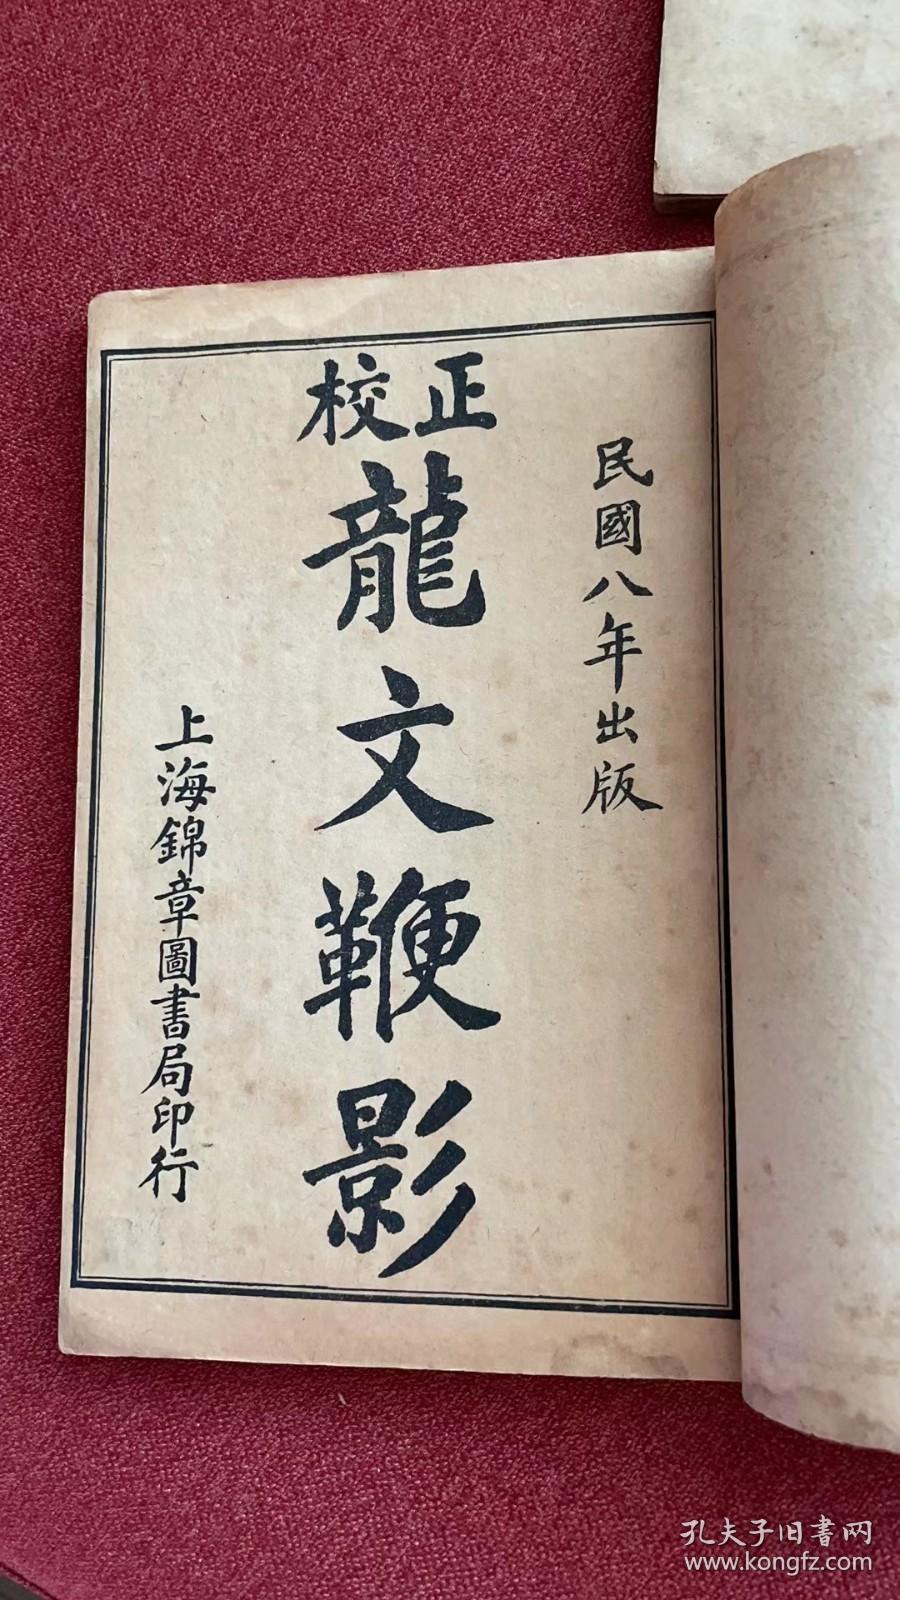 民國八年出版
正校
龍文鞭影
上海錦章圖書局印行
孔夫子旧书网
www.kongfz.com